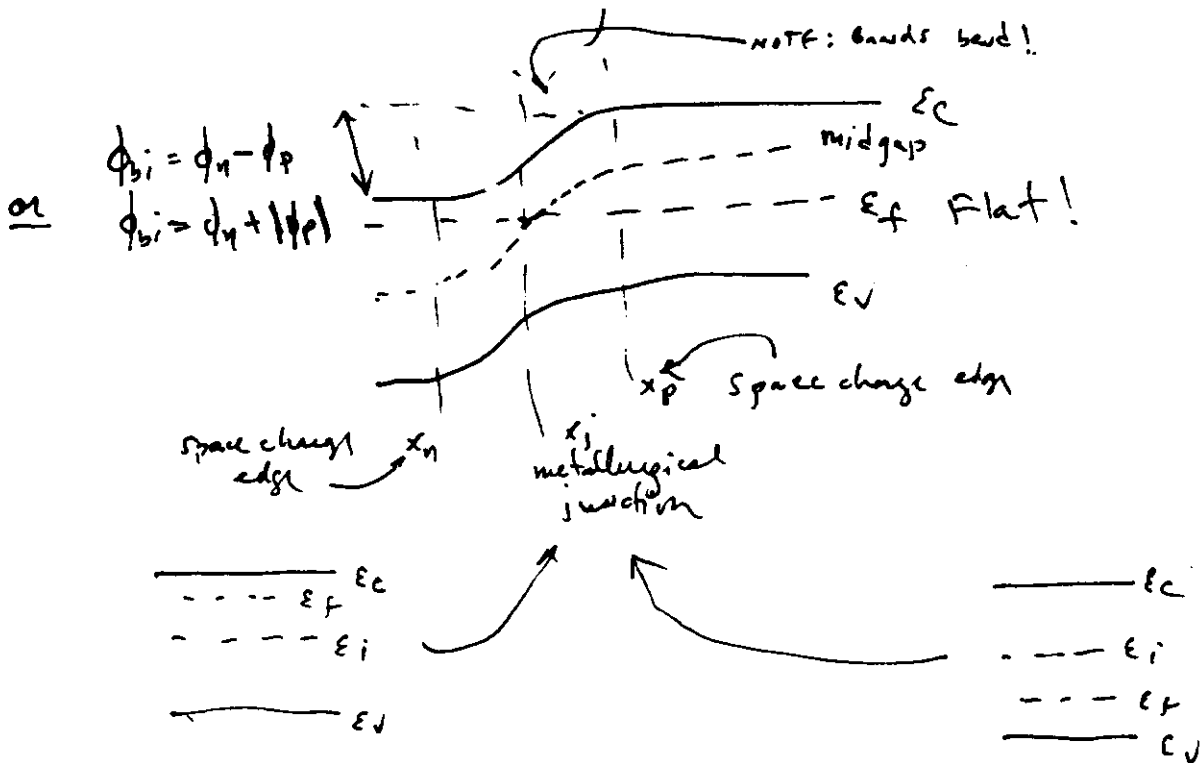 NOTE: Bands bend!
εc
midgap
ϕbi = ϕn - ϕp
or ϕbi = ϕn + |ϕp|
εf Flat!
εv
xp space charge edge
space charge edge xn
xj
metallurgical
junction
εc
εf
εi
εv
εc
εi
εf
εv